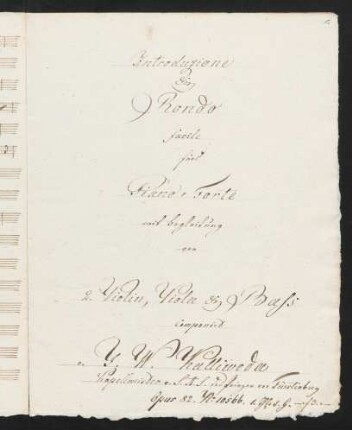 Introduzione
&
Rondo
facile
für
Piano-Forte
mit Begleitung
von
2. Violin, Viola & Bass
componirt
v. J. W. Kalliwoda
Kapellmeister Fürstenberg
Opus 82. No 10566.